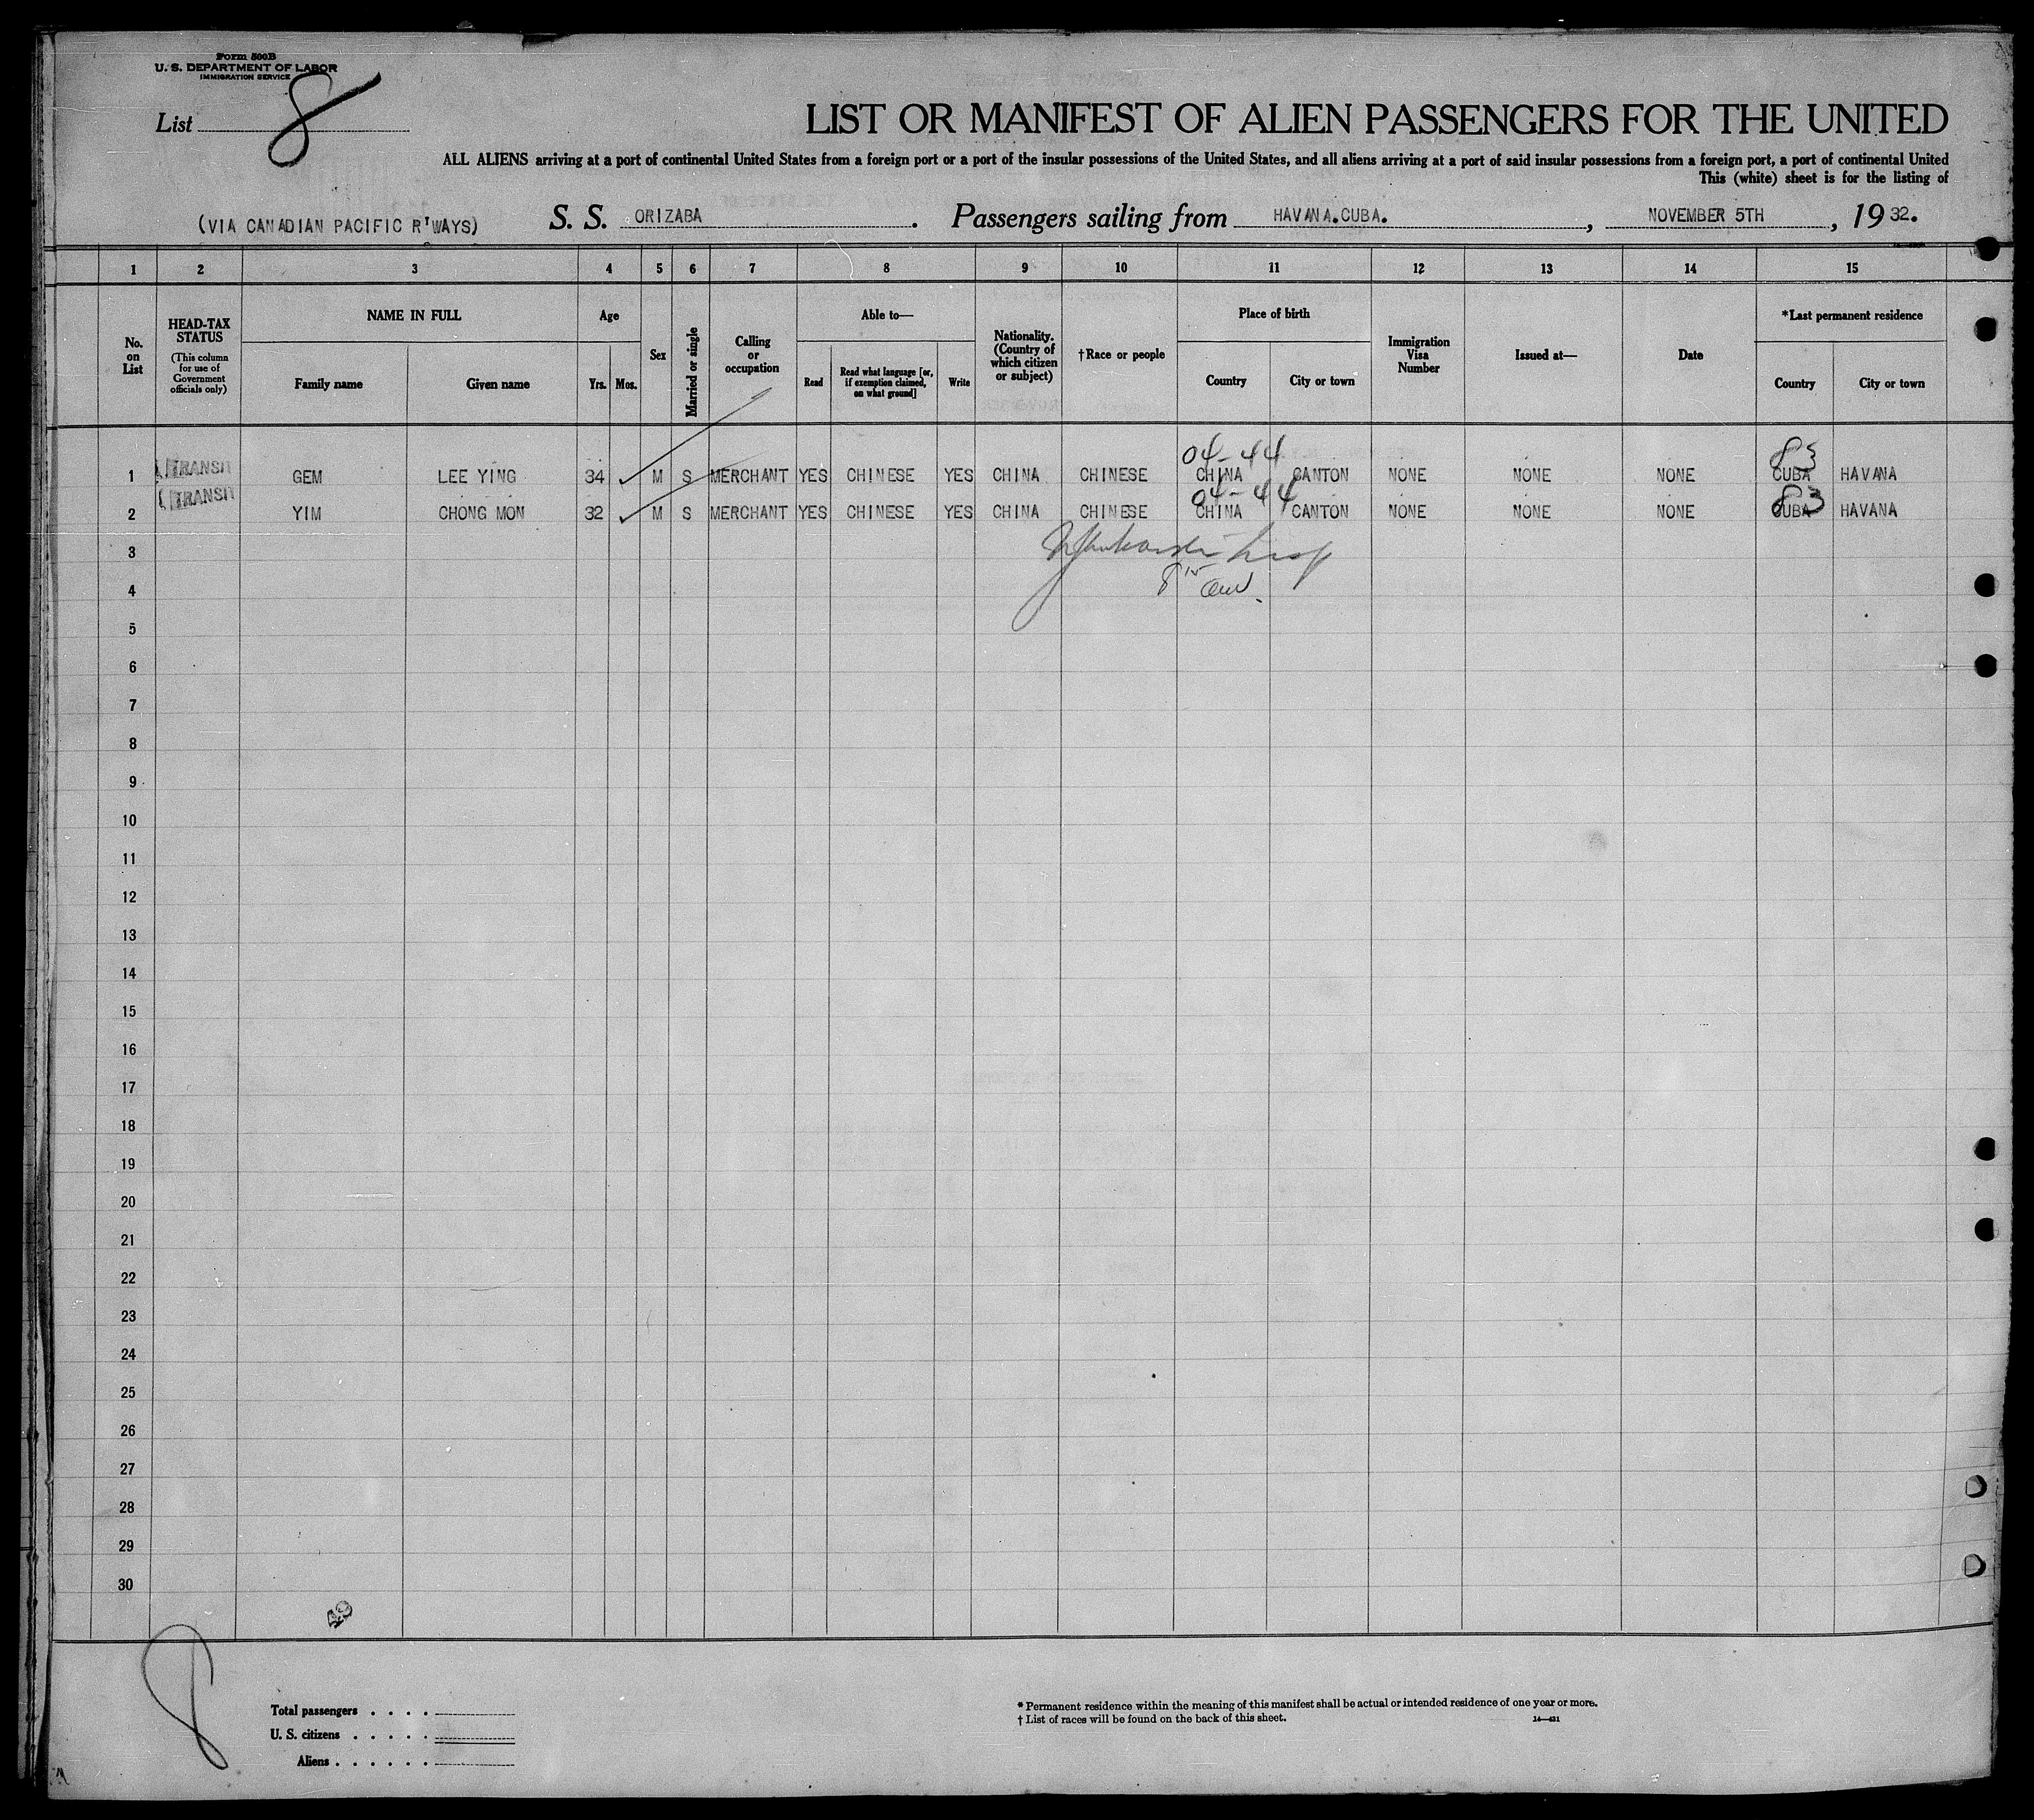 Form 500B
U. S. DEPARTMENT OF LABOR
IMMIGRATION SERVICE
List 8
LIST OR MANIFEST OF ALIEN PASSENGERS FOR THE UNITED
ALL ALIENS arriving at a port of continental United States from a foreign port or a port of the insular possessions of the United States, and all aliens arriving at a port of said insular possessions from a foreign port, a port of continental United
This (white) sheet is for the listing of
(VIA CANADIAN PACIFIC R'WAYS) S. S. ORIZABA. Passengers sailing from HAVANA.CUBA. , NOVEMBER 5TH , 19 32.
1 2 3 4 5 6 7 8 9 10 11 12 13 14 15
No. on List
HEAD-TAX STATUS (This column for use of Government officials only)
NAME IN FULL
Family name Given name
Age
Yrs. Mos.
Sex
Married or single
Calling or occupation
Able to—
Read Read what language [or, if exemption claimed, on what ground] Write
Nationality. (Country of which citizen or subject)
†Race or people
Place of birth
Country City or town
Immigration Visa Number
Issued at—
Date
*Last permanent residence
Country City or town
04-44 83
1 TRANSIT GEM LEE YING 34 M S MERCHANT YES CHINESE YES CHINA CHINESE CHINA CANTON NONE NONE NONE CUBA HAVANA
04-44 83
2 TRANSIT YIM CHONG MON 32 M S MERCHANT YES CHINESE YES CHINA CHINESE CHINA CANTON NONE NONE NONE CUBA HAVANA
3
4
5
6
7
8
9
10
11
12
13
14
15
16
17
18
19
20
21
22
23
24
25
26
27
28
29
30
49
8
Total passengers . . . .
U. S. citizens . . . . .
Aliens . . . . . .
* Permanent residence within the meaning of this manifest shall be actual or intended residence of one year or more.
† List of races will be found on the back of this sheet.
14—431